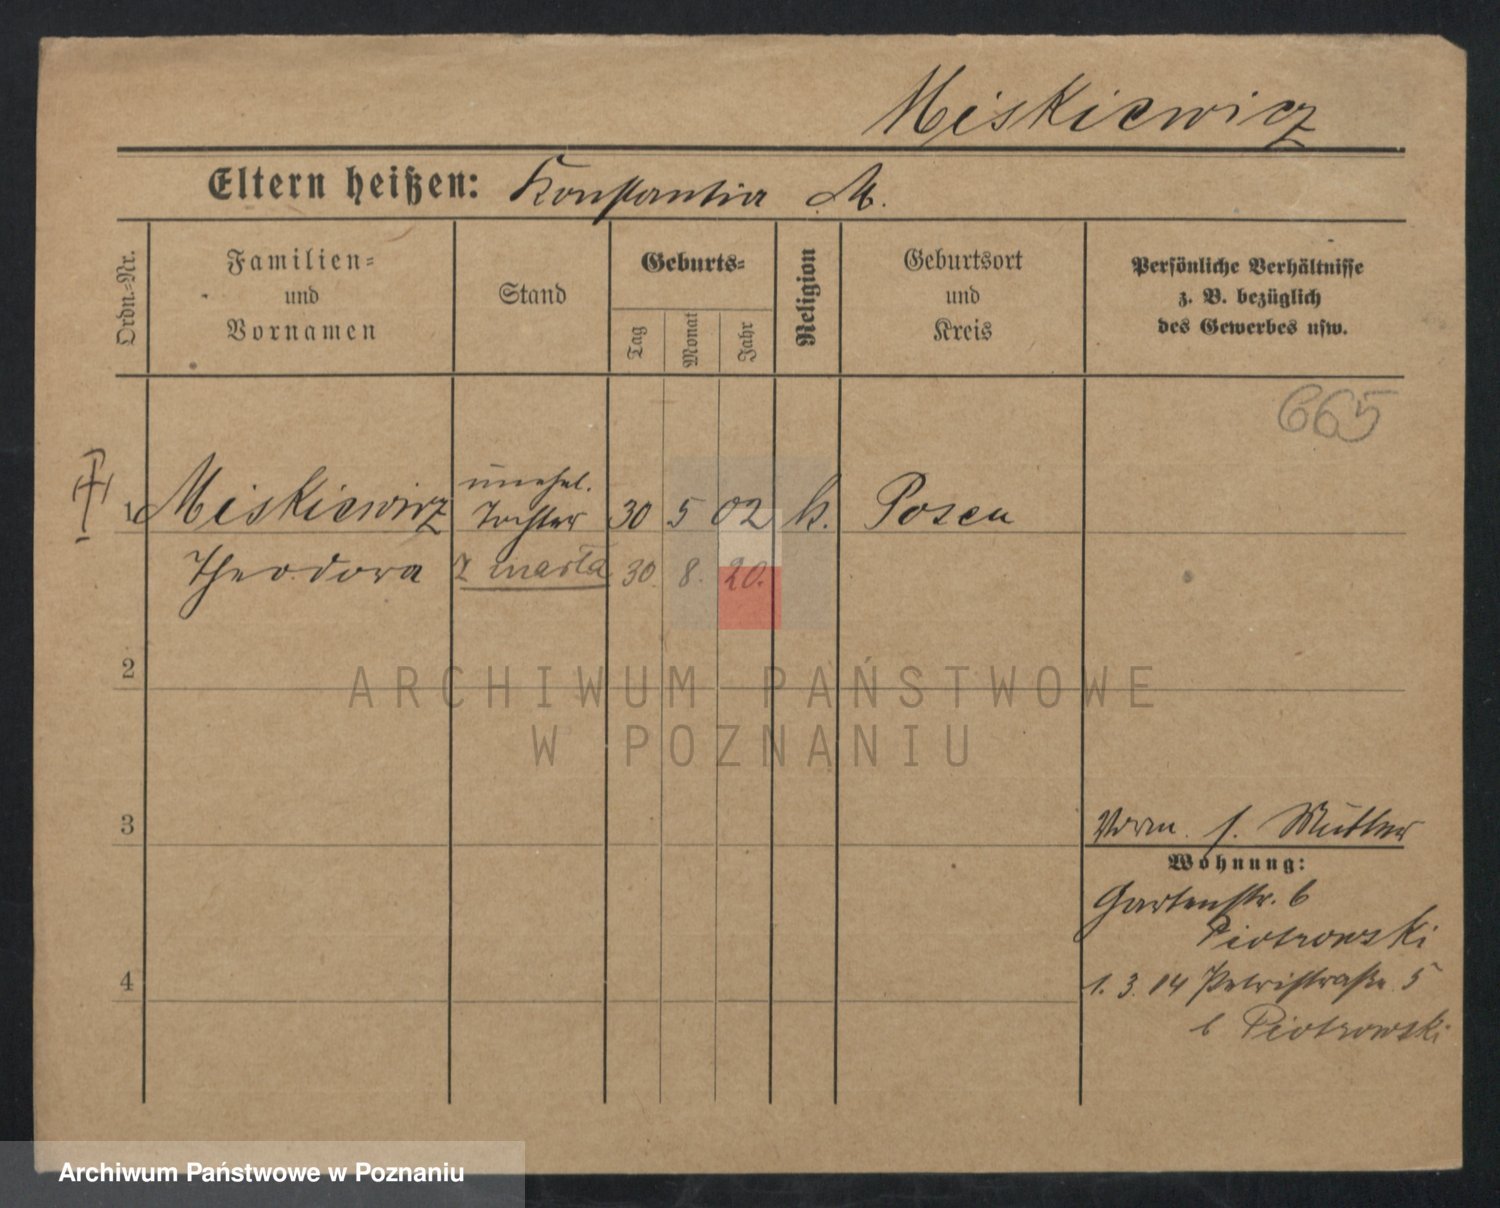 Miskiewicz
Eltern heißen: Konstantia M.
Ordn.=Nr.
Familien=
und
Vornamen
Stand
Geburts=
Tag
Monat
Jahr
Religion
Geburtsort
und
Kreis
Persönliche Verhältnisse
z. B. bezüglich
des Gewerbes usw.
665
unehel.
1 Miskiewicz Tochter 30 5 02 k. Posen
Theodora zmarła 30. 8. 20.
2
ARCHIWUM PAŃSTWOWE
W POZNANIU
3
Vorm. s. Mutter
Wohnung:
Gartenstr. 6
Piotrowski
4
1. 3. 14 Petristraße 5
b Piotrowski
Archiwum Państwowe w Poznaniu